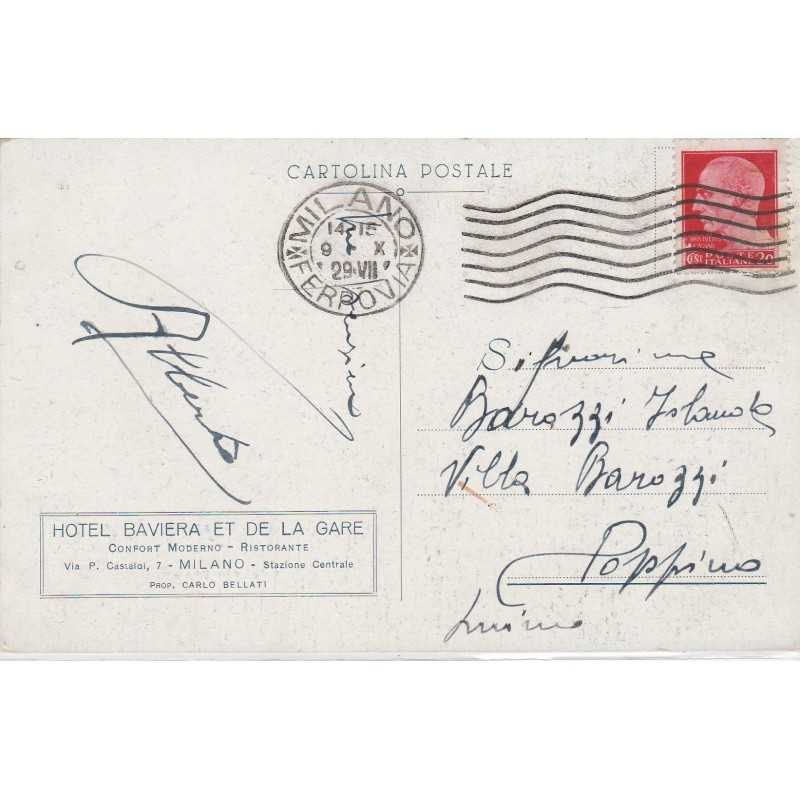 CARTOLINA POSTALE
MILANO
14-15
9 X
29·VII
FERROVIA
POSTE ITALIANE 20
Alberto
Signorina
Barozzi Islanda
Villa Barozzi
Poppino
HOTEL BAVIERA ET DE LA GARE
CONFORT MODERNO - RISTORANTE
VIA P. CASTALDI, 7 - MILANO - STAZIONE CENTRALE
PROP. CARLO BELLATI